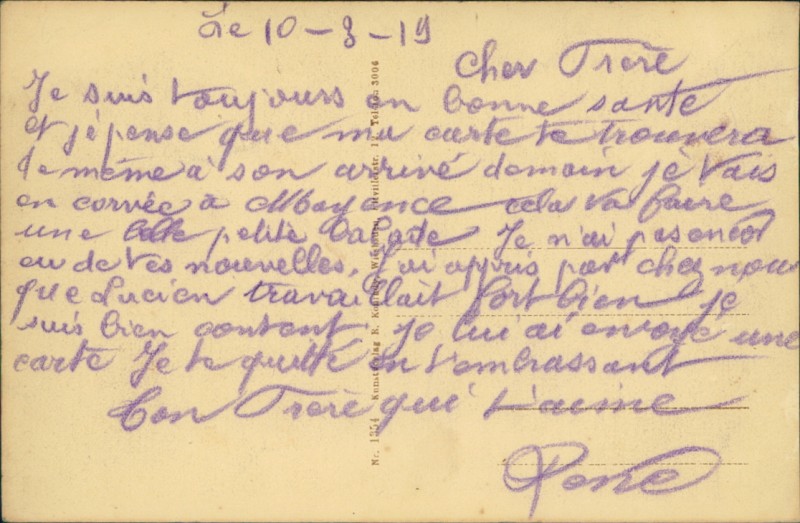 Le 10 - 3 - 19
Cher Frère
Je suis toujours en bonne santé
et jé pense que ma carte te trouvera
de même à son arrivé demain jé vais
en corvée à Mayence cela va faire
une belle petite balade Je n'ai pas encor
eu de tes nouvelles. J'ai appris par chez nous
que Lucien travaillait fort bien je
suis bien content je lui ai envoyé une
carte Je te quitte en t'embrassant
ton Frère qui t'aime
René
Nr. 1354 Kunstverlag R. Wiesbaden, 1, Telefon 3006